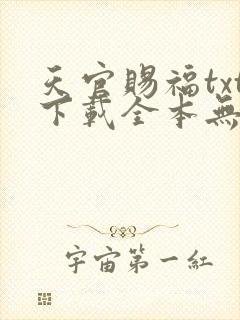 天官賜福txt
下載全本無
宇宙第一紅